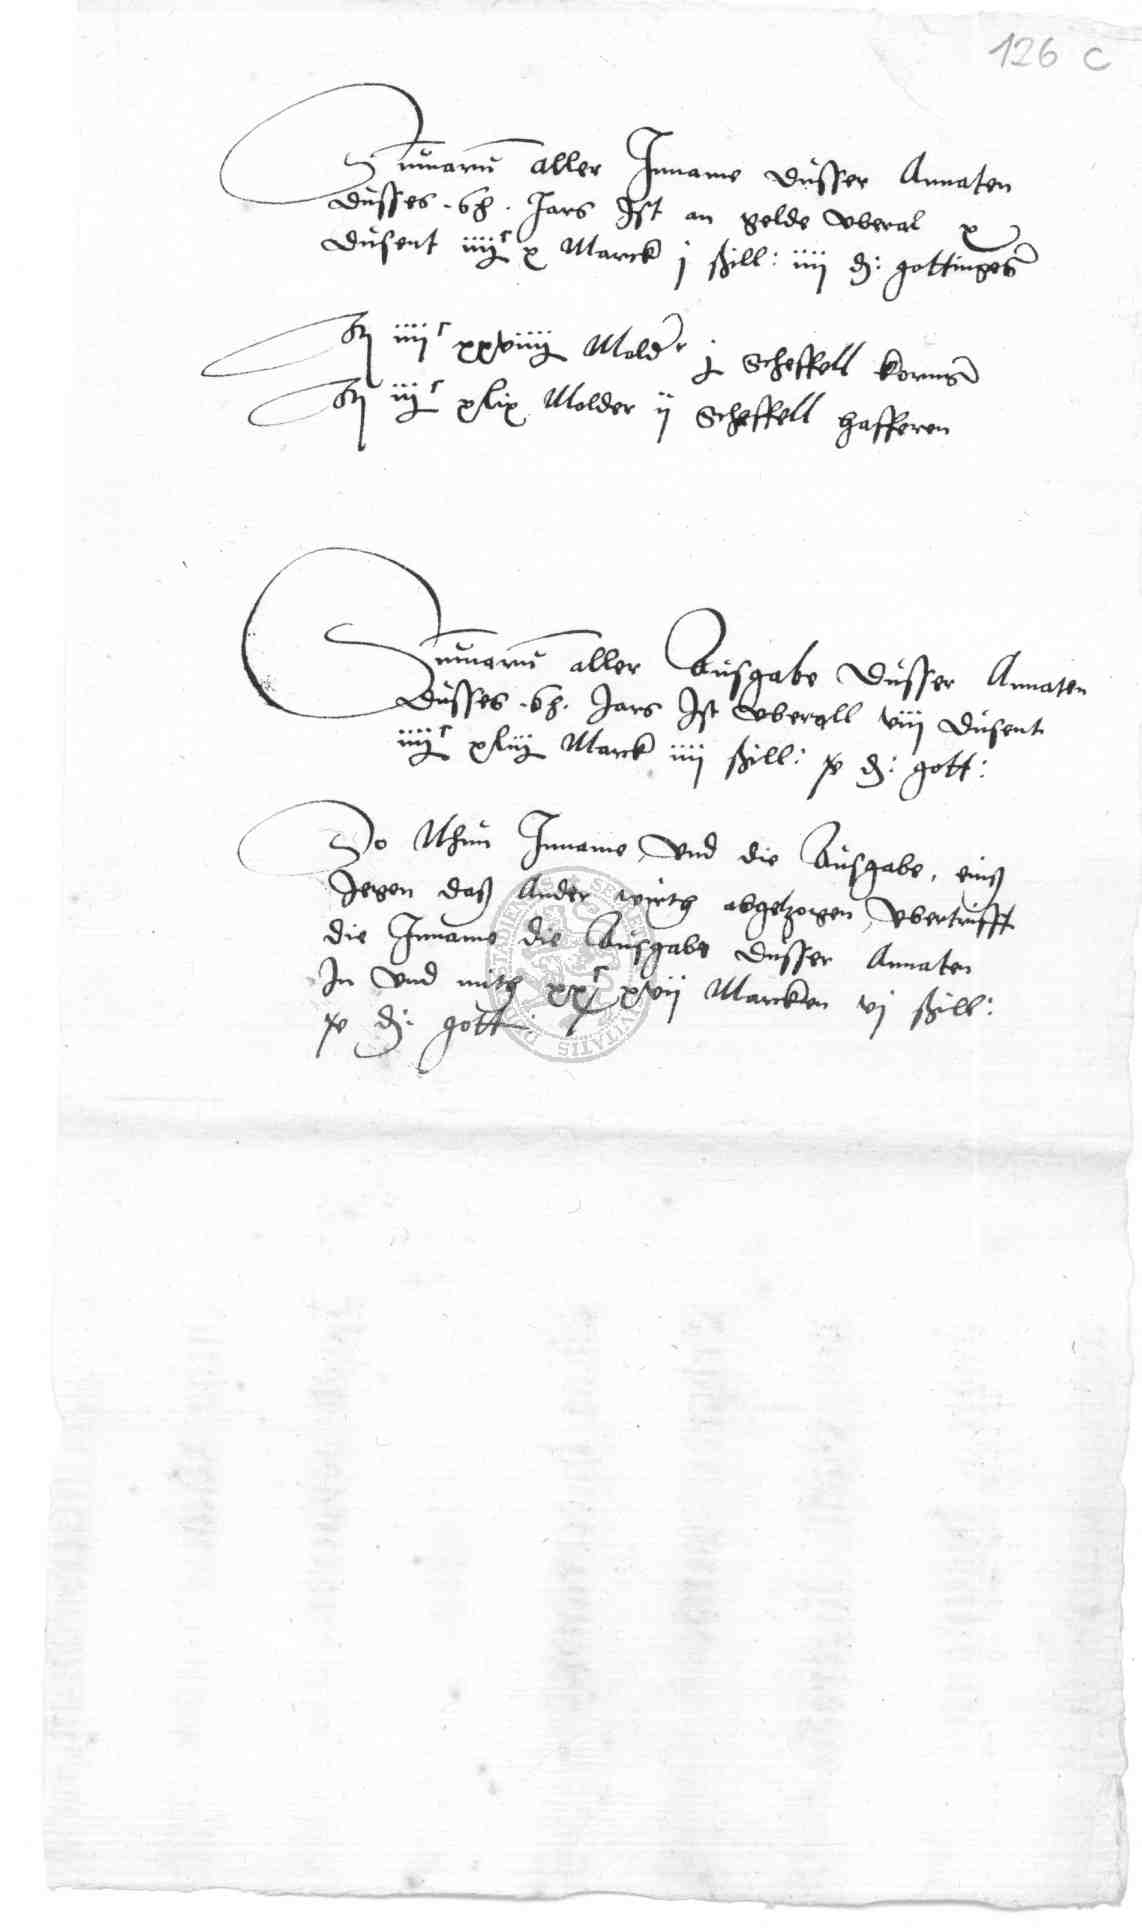 126 c
Summarum aller Inname dusser Annaten
dusses .58. Jars Ist an gelde vberal x
dusent iiijc x Marck j ßill: iiij d: gottinges
iiijc xxviiij Molder j Scheffell korns
iijc xlix Molder ij Scheffell hafferen
Summarum aller Ausgabe dusser Annaten
dusses Jars Ist vberall viij dusent
iiijc xliij Marck iiij ßill: d: gott:
So Nhun Inname, vnd die Ausgabe, einß
Jegen daß Ander wirth abgetzogen, vbertrifft
die Inname die Ausgabe dusser Annaten
In vnd mith xvij Marcken vj ßill:
d: gott: